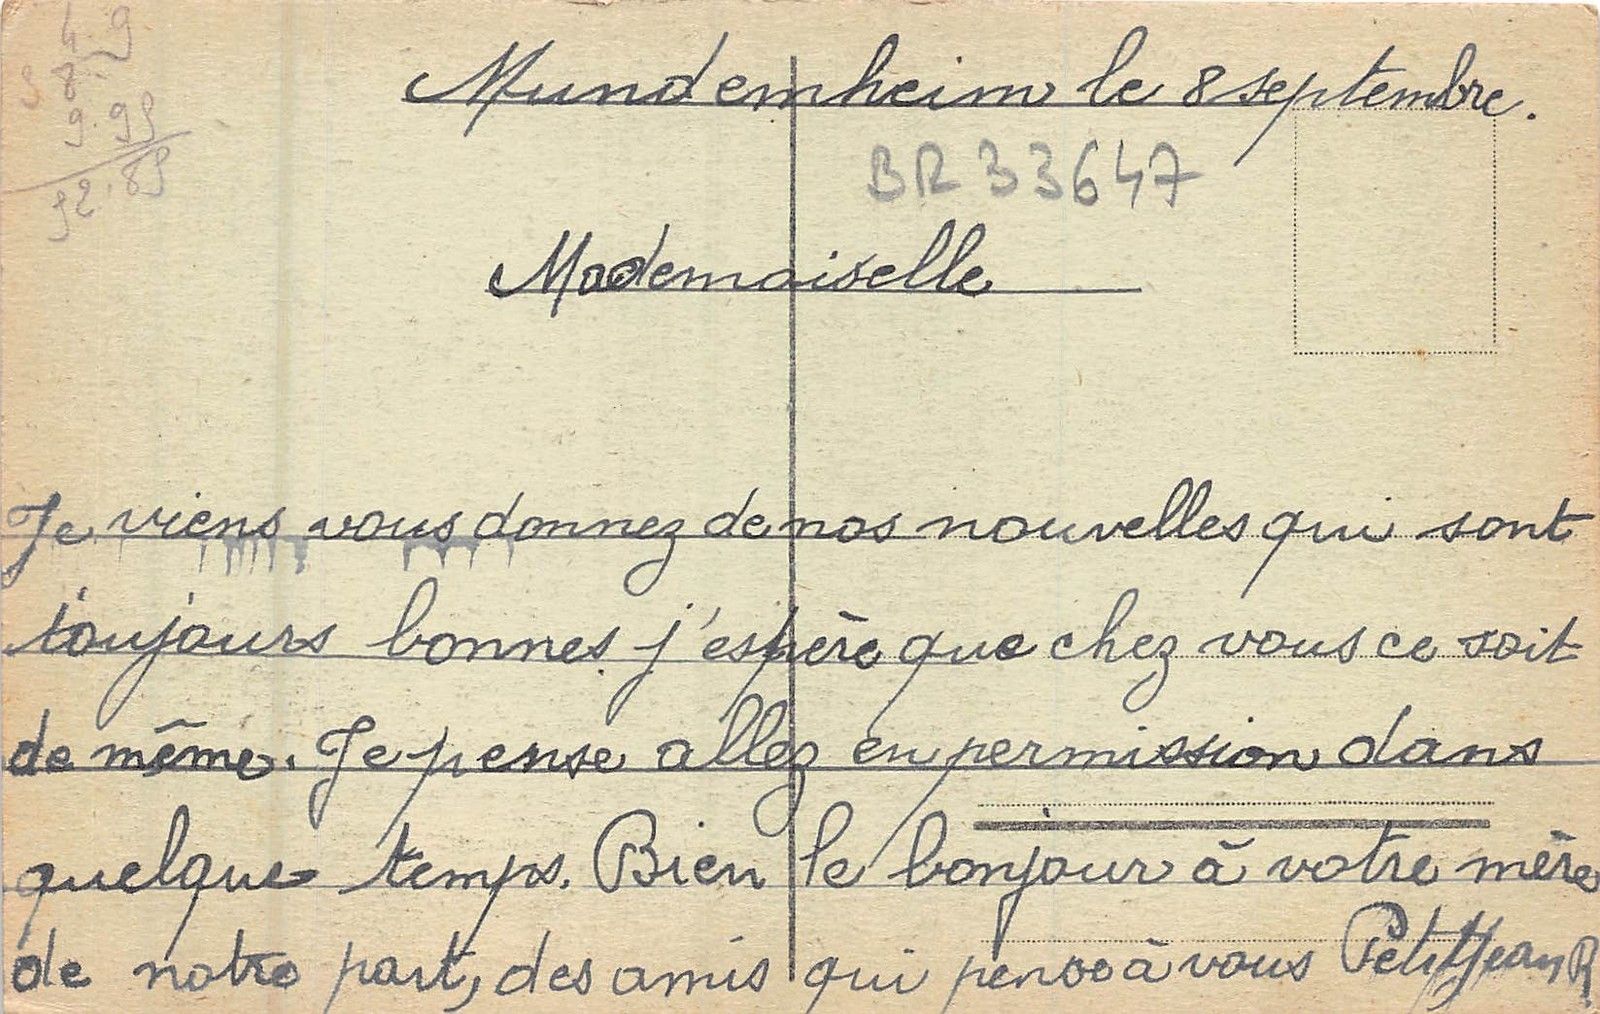 4.9
8.
9.95
Mundemheim le 8 septembre.
BR 33647
Mademaiselle
Je viens vous donnez de nos nouvelles qui sont
toujours bonnes j'espère que chez vous ce soit
de même. Je pense allez en permission dans
quelque temps. Bien le bonjour à votre mère
de notre part, des amis qui pense à vous Petitjean R